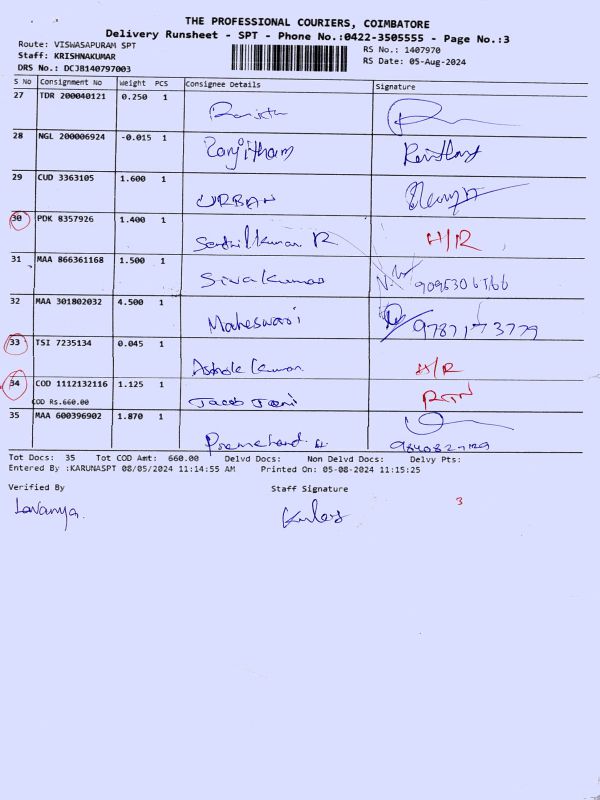 THE PROFESSIONAL COURIERS, COIMBATORE
Delivery Runsheet - SPT - Phone No.:0422-3505555 - Page No.:3
Route: VISWASAPURAM SPT
RS No.: 1407970
Staff: KRISHNAKUMAR
RS Date: 05-Aug-2024
DRS No.: DCJB140797003
S No Consignment No Weight PCS Consignee Details Signature
27 TDR 200040121 0.250 1
28 NGL 200006924 -0.015 1
Ranjitham
29 CUD 3363105 1.600 1
URBAN
30 PDK 8357926 1.400 1
Senthilkumar R H/R
31 MAA 866361168 1.500 1
Sivakumar
32 MAA 301802032 4.500 1
Maheswari
33 TSI 7235134 0.045 1
Ashok kumar H/R
34 COD 1112132116 1.125 1
COD Rs.660.00 Jacob RTN
35 MAA 600396902 1.870 1
Premchand
Tot Docs: 35 Tot COD Amt: 660.00 Delvd Docs: Non Delvd Docs: Delvy Pts:
Entered By :KARUNASPT 08/05/2024 11:14:55 AM Printed On: 05-08-2024 11:15:25
Verified By Staff Signature
Lavanya. 3